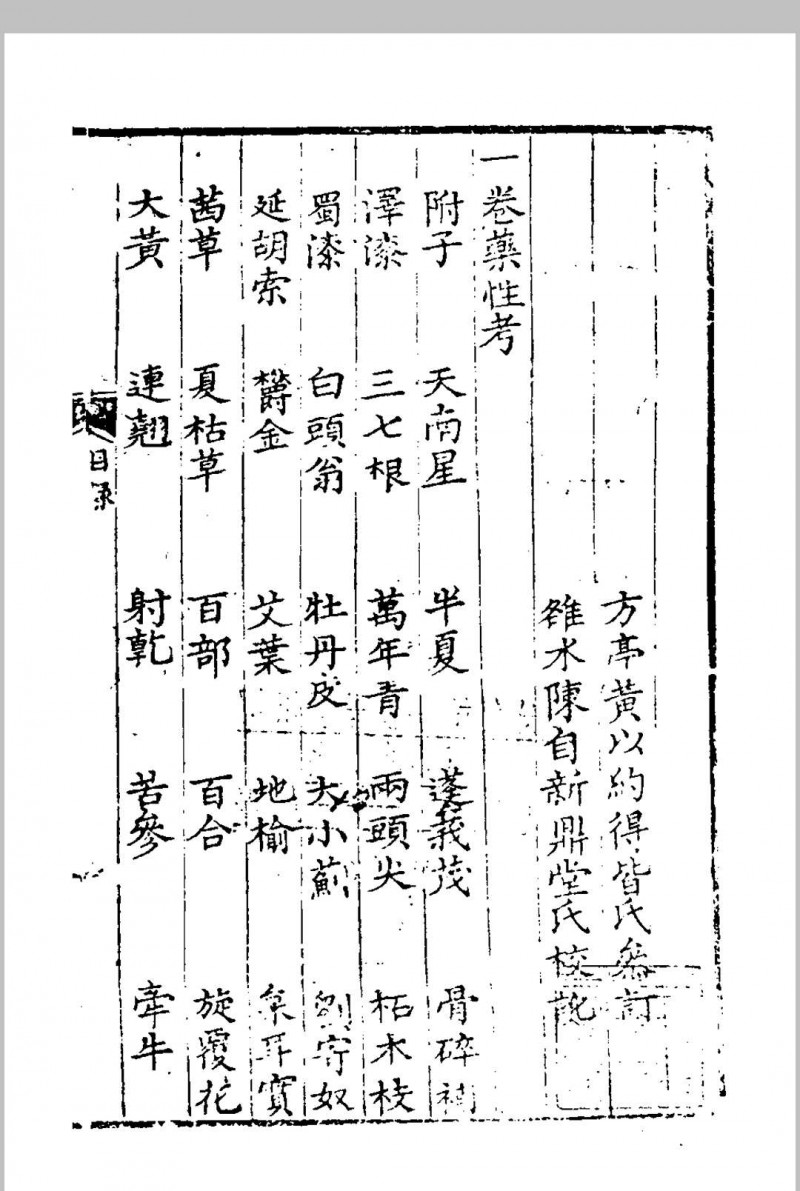 方亭黃以約得皆氏叅訂
雒水陳自新鼎堂氏校訛
一卷藥性考
附子 天南星 半夏 蓬莪茂 骨碎補
澤漆 三七根 萬年青 兩頭尖 柘木枝
蜀漆 白頭翁 牡丹皮 大小薊 劉寄奴
延胡索 欝金 艾葉 地榆 枲耳實
茜草 夏枯草 百部 百合 旋覆花
大黃 連翹 射乾 苦參 牽牛
目录